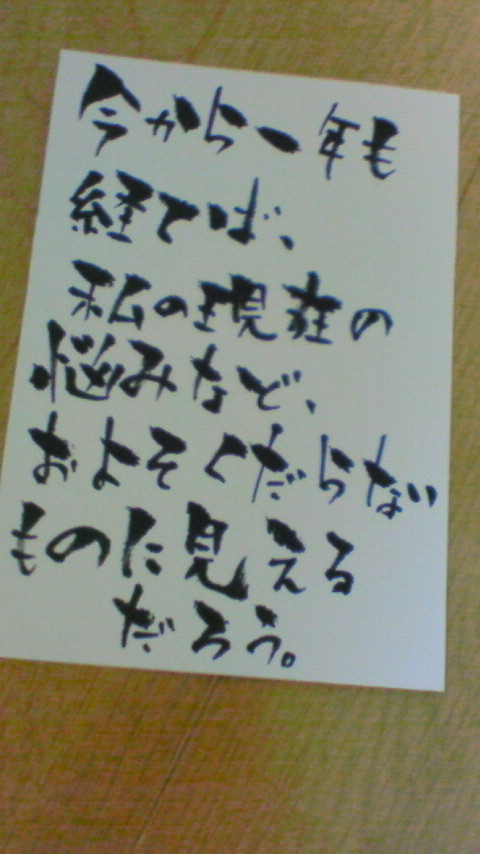 今から一年も
経てば、
私の現在の
悩みなど、
およそくだらない
ものに見える
だろう。